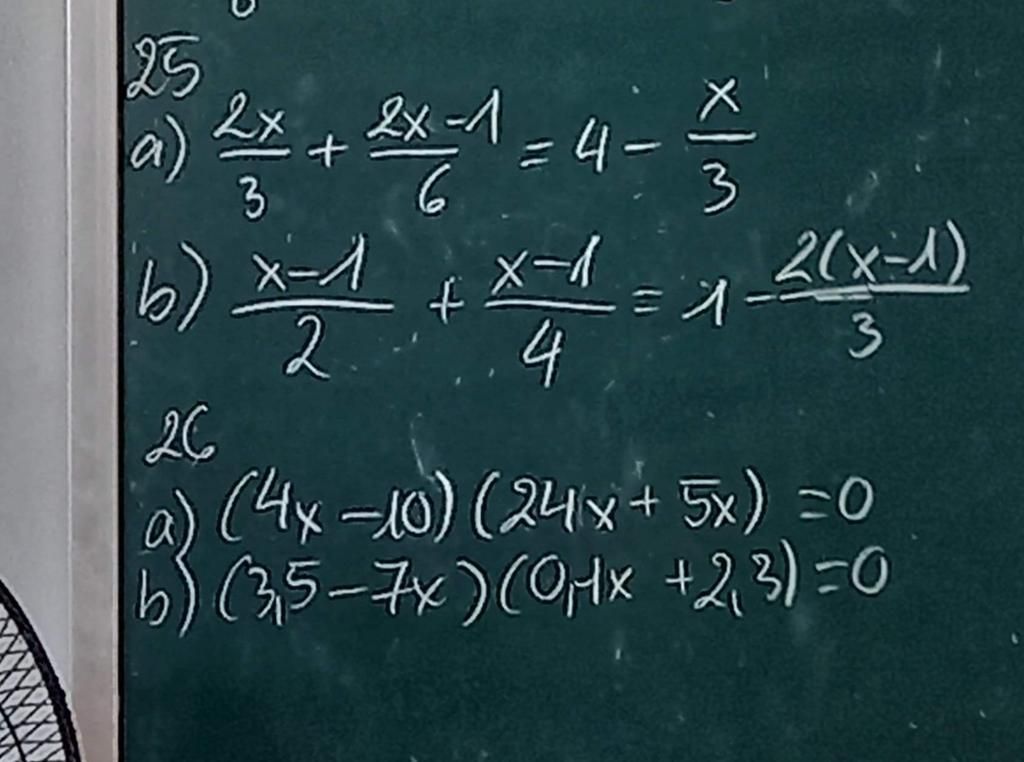 25
a) 2x/3 + 2x-1/6 = 4 - x/3
b) x-1/2 + x-1/4 = 1 - 2(x-1)/3
26
a) (4x-10)(24x+5x) = 0
b) (3,5-7x)(0,1x+2,3) = 0